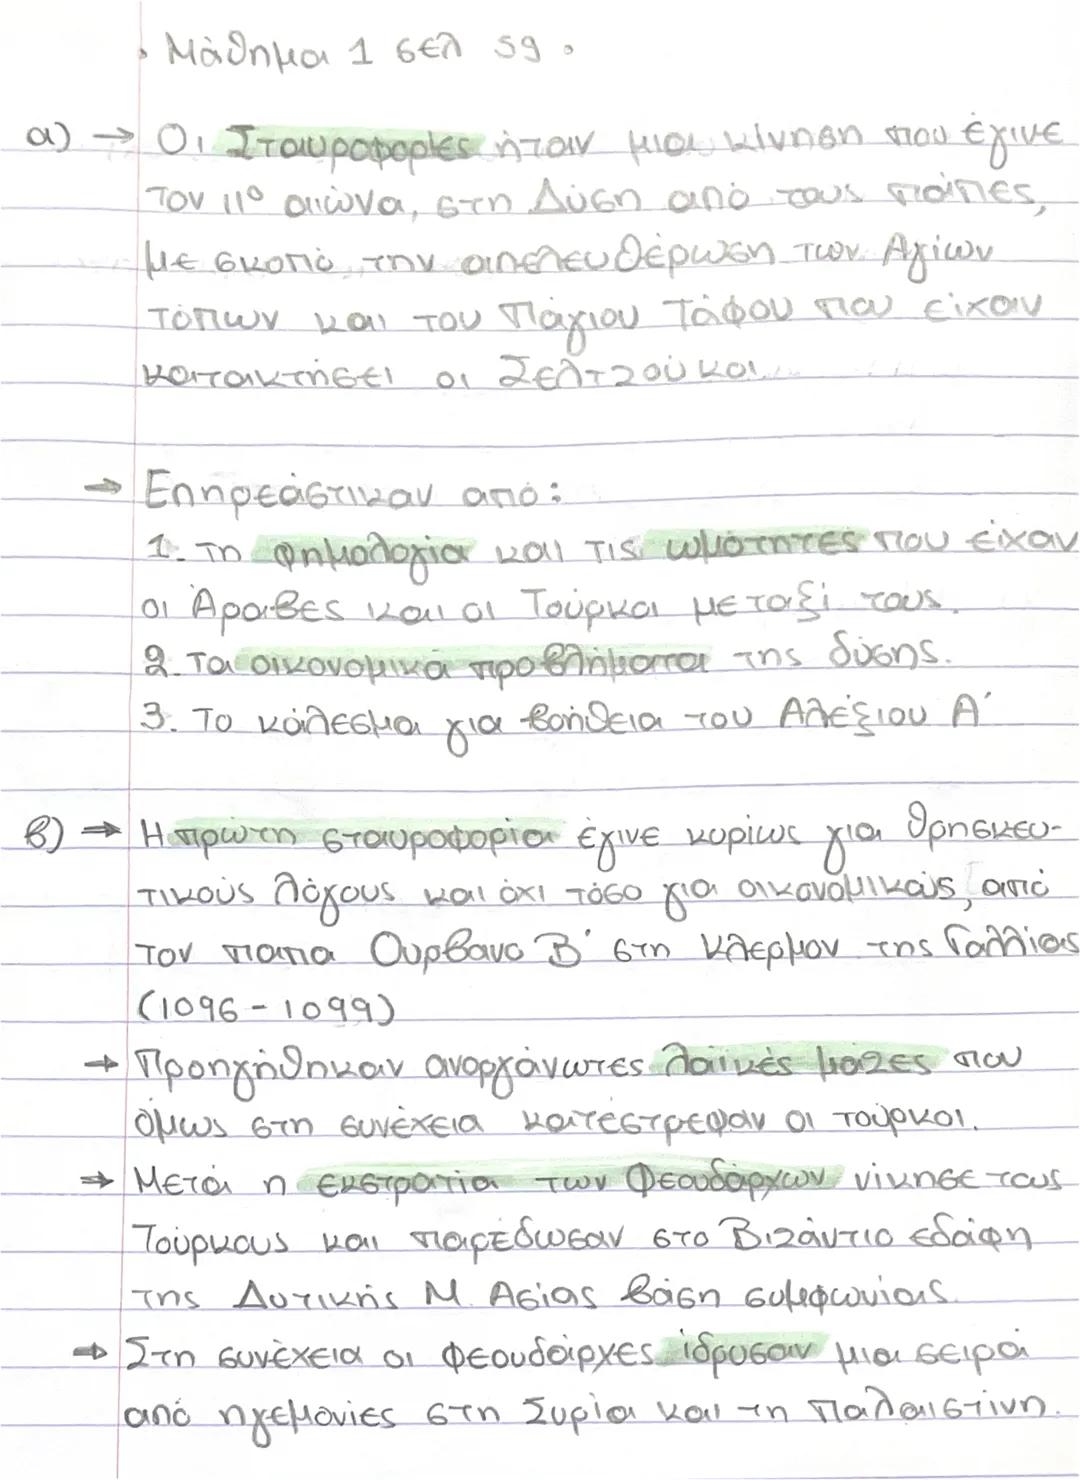 • Μάθημα 1 σελ 59 •
α) → Οι Σταυροφορίες ήταν μια κίνηση που έγινε
τον 11ο αιώνα, στη Δύση από τους πάπες,
με σκοπό την απελευθέρωση των Αγίων
τόπων και του Πάγιου Τάφου που είχαν
κατακτήσει οι Σελτζούκοι.
→ Επηρεάστικαν από:
1. τη φημολογία και τις ωμότητες που είχαν
οι Άραβες και οι Τούρκοι μεταξί τους.
2. Τα οικονομικά προβλήματα της δύσης.
3. Το κάλεσμα για βοήθεια του Αλέξιου Α΄
β) → Η πρώτη σταυροφορία έγινε κυρίως για θρησκευ-
τικούς λόγους και όχι τόσο για οικονομικούς, από
τον παπα Ουρβανο Β΄ στη Κλερμον της Γαλλίας
(1096 - 1099)
→ Προηγήθηκαν ανοργάνωτες λαϊκές μάζες που
όμως στη συνέχεια κατέστρεψαν οι τούρκοι.
→ Μετά η εκστρατία των Φεουδάρχων νίκησε τους
Τούρκους και παρέδωσαν στο Βιζάντιο εδάφη
της Δυτικής Μ. Ασίας βάση συμφωνίας.
→ Στη συνέχεια οι φεουδάρχες ίδρυσαν μια σειρά
από ηγεμονίες στη Συρία και τη Παλαιστίνη.